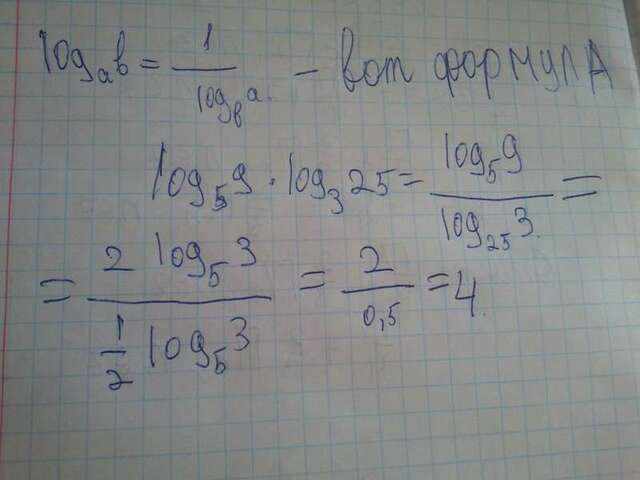 log_a b = 1/log_b a - вот формулА
log_5 9 · log_3 25 = log_5 9/log_25 3 =
= 2 log_5 3/(1/2 log_5 3) = 2/0,5 = 4.